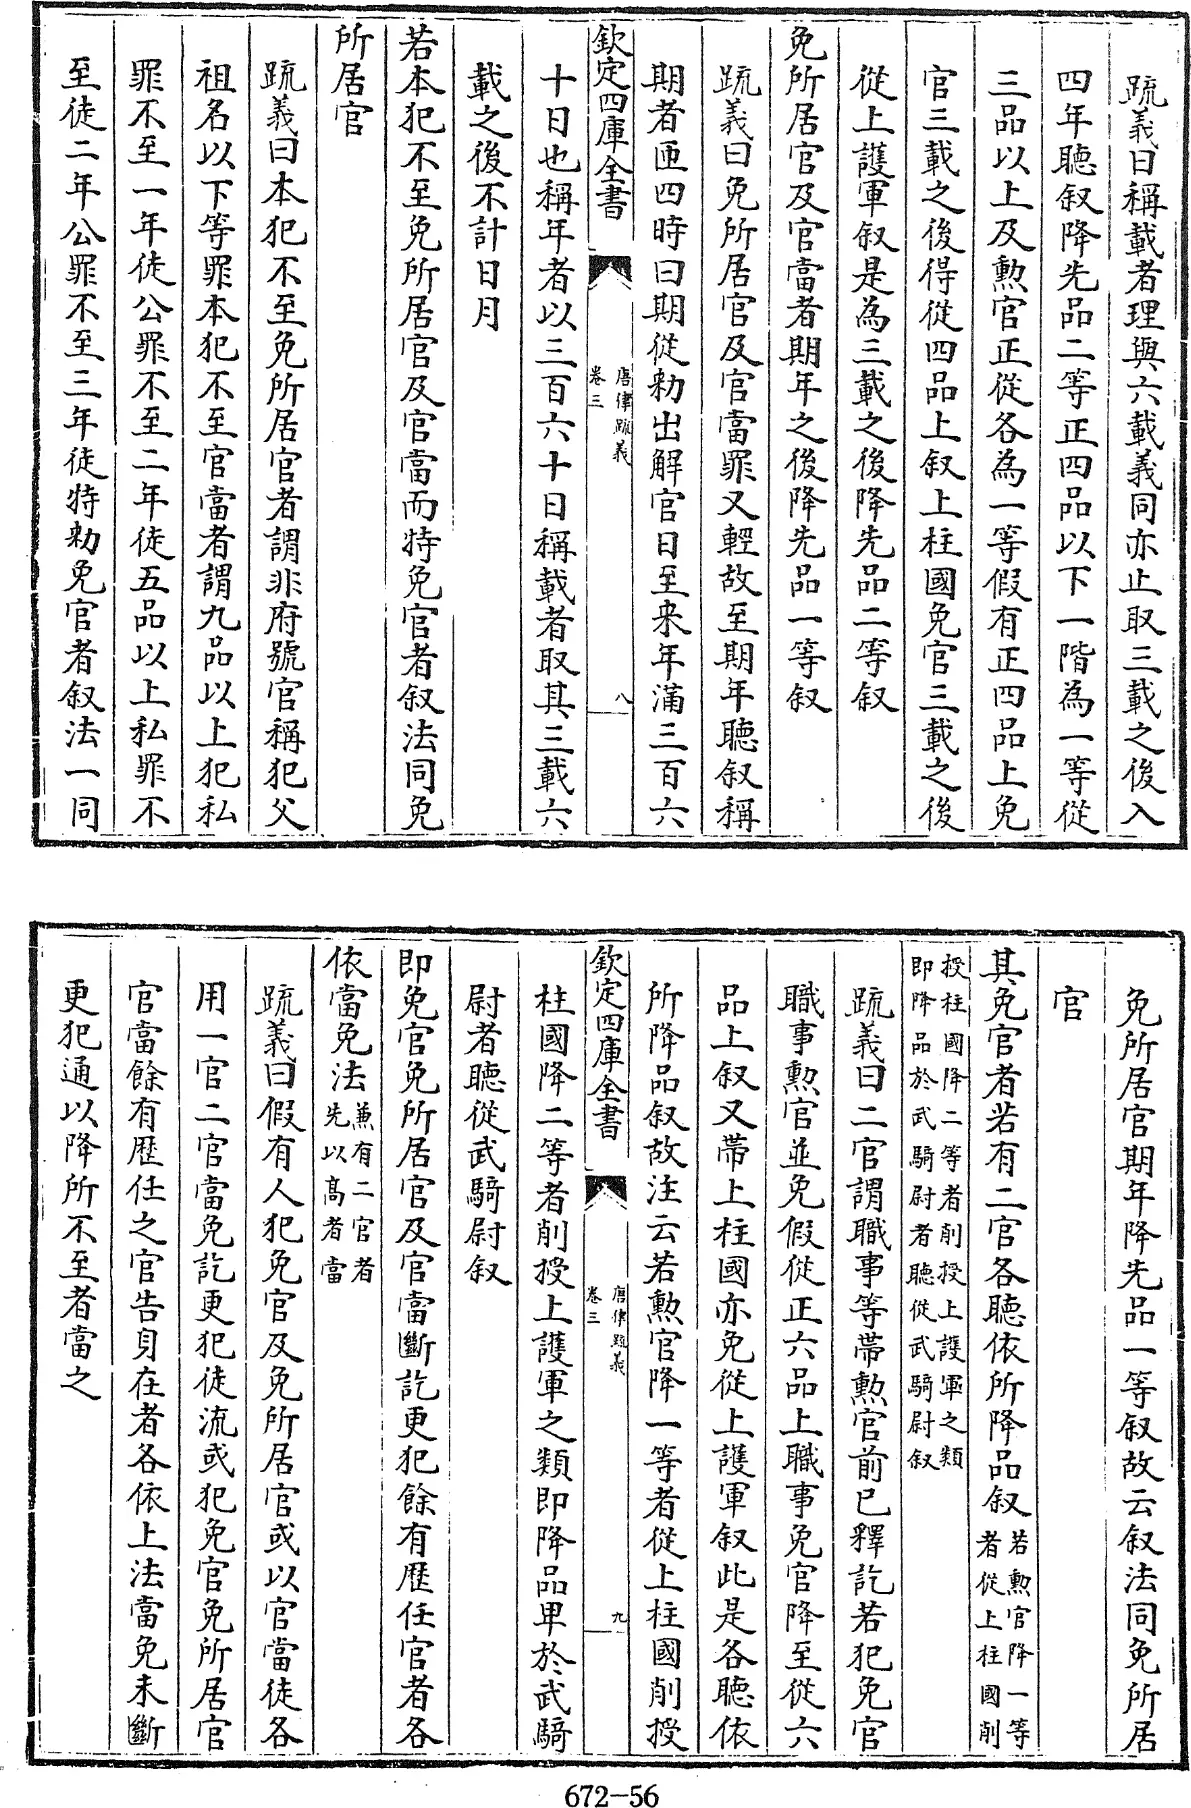 疏義曰稱載者理與六載義同亦止取三載之後入
四年聽敘降先品二等正四品以下一階為一等從
三品以上及勲官正從各為一等假有正四品上免
官三載之後得從四品上敘上柱國免官三載之後
從上護軍敘是為三載之後降先品二等敘
免所居官及官當者期年之後降先品一等敘
疏義曰免所居官及官當罪又輕故至期年聽敘稱
期者匝四時曰期從勅出解官日至來年滿三百六
欽定四庫全書
唐律疏義
卷三
八
十日也稱年者以三百六十日稱載者取其三載六
載之後不計日月
若本犯不至免所居官及官當而特免官者敘法同免
所居官
疏義曰本犯不至免所居官者謂非府號官稱犯父
祖名以下等罪本犯不至官當者謂九品以上犯私
罪不至一年徒公罪不至二年徒五品以上私罪不
至徒二年公罪不至三年徒特勅免官者敘法一同
免所居官期年降先品一等敘故云敘法同免所居
官
其免官者若有二官各聽依所降品敘若勲官降一等
者從上柱國削
授柱國降二等者削授上護軍之類
即降品於武騎尉者聽從武騎尉敘
疏義曰二官謂職事等帶勲官前已釋訖若犯免官
職事勲官並免假從正六品上職事免官降至從六
品上敘又帶上柱國亦免從上護軍敘此是各聽依
所降品敘故注云若勲官降一等者從上柱國削授
欽定四庫全書
唐律疏義
卷三
九
柱國降二等者削授上護軍之類即降品卑於武騎
尉者聽從武騎尉敘
即免官免所居官及官當斷訖更犯餘有歷任官者各
依當免法兼有二官者
先以高者當
疏義曰假有人犯免官及免所居官或以官當徒各
用一官二官當免訖更犯徒流或犯免官免所居官
官當餘有歷仕之官告身在者各依上法當免未斷
更犯通以降所不至者當之
672-56